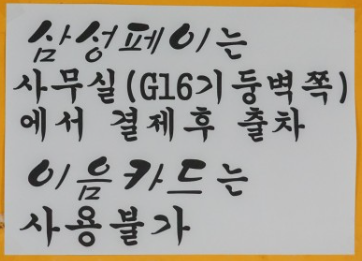 삼성페이는
사무실(G16기둥벽쪽)
에서 결제후 출차
이음카드는
사용불가